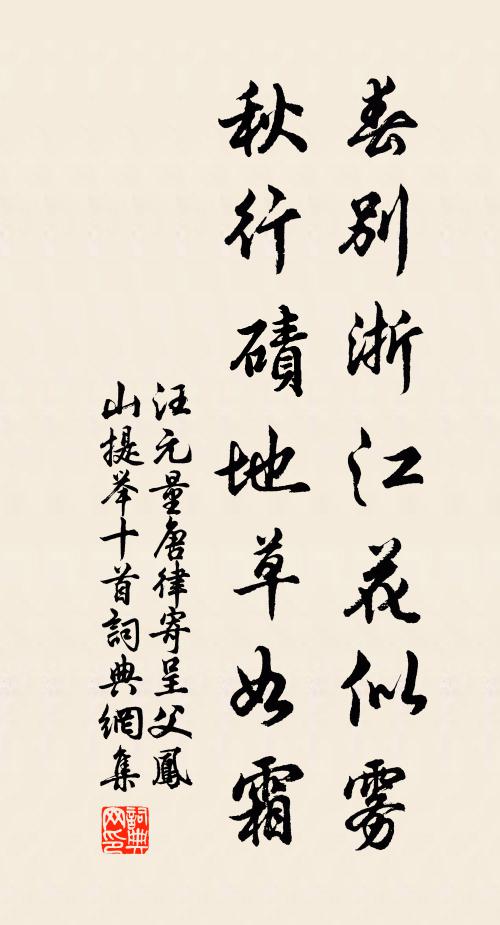 春別浙江花似雾
秋行磧地草如霜
汪元量唐律寄呈父鳳
山提举十首詞典網集
詞典网印